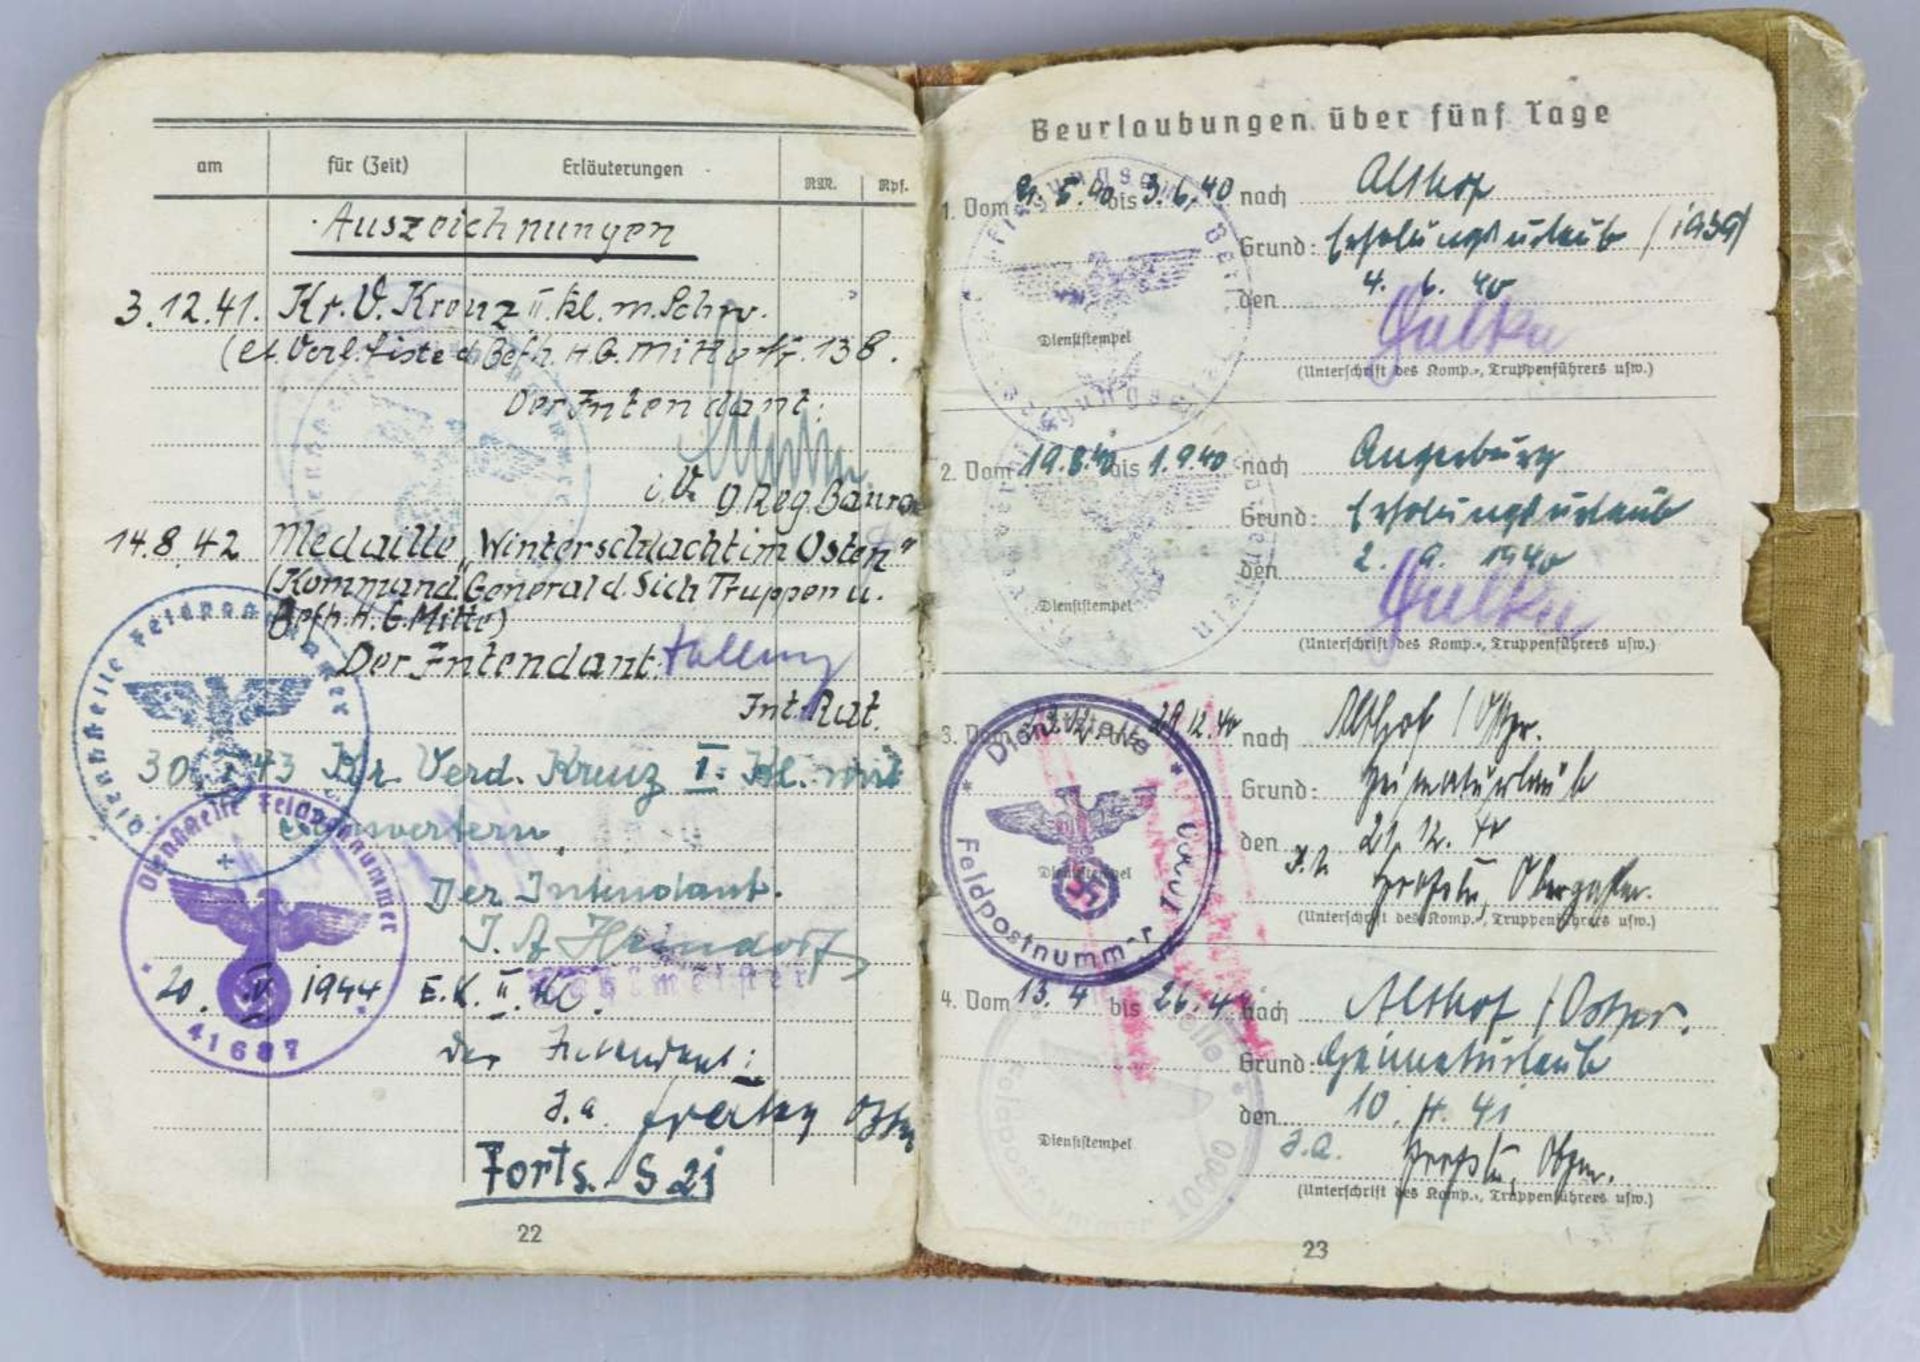 am für (Zeit) Erläuterungen RM. Rpf.
Auszeichnungen
3.12.41. Kr. V. Kreuz II kl. m. Schw.
(lt. Verl. Liste d. Befh. H. G. Mitte Nr. 138.
Der Intendant:
i. V.
Reg Baura
14.8.42 Medaille „Winterschlacht im Osten"
(Kommand. General d. Sich Truppen u.
Befh. H. G. Mitte)
Der Intendant:
Int. Rat.
Dienststelle Feldpostnummer
30 43 Kr. Verd. Kreuz I. Kl. mit
Schwertern.
Der Intendant.
I. A. Heindorf
Zahlmeister
Dienststelle Feldpostnummer
41687
20. IV 1944 E.K. II. Kl.
Der Intendant:
I. A.
Forts. S 21
22
Beurlaubungen über fünf Tage
1. Vom 21.5.40 bis 3.6.40 nach Althof
Grund: Erholungsurlaub (1939)
den 4. 6. 40
Dienststempel
(Unterschrift des Komp.-, Truppenführers usw.)
2. Vom 19.8.40 bis 1.9.40 nach Angerburg
Grund: Erholungsurlaub
den 2. 9. 1940
Dienststempel
(Unterschrift des Komp.-, Truppenführers usw.)
3. Vom 13.12. bis 29.12.40 nach Althof / Ostpr.
Grund: Heimaturlaub
den 21. 12. 40
Dienststelle
Feldpostnummer
Dienststempel
(Unterschrift des Komp.-, Truppenführers usw.)
4. Vom 13. 4 bis 26. 4. nach Althof / Ostpr.
Grund: Heimaturlaub
den 10. 4. 41
I. A.
Feldpostnummer 10000
Dienststempel
(Unterschrift des Komp.-, Truppenführers usw.)
23